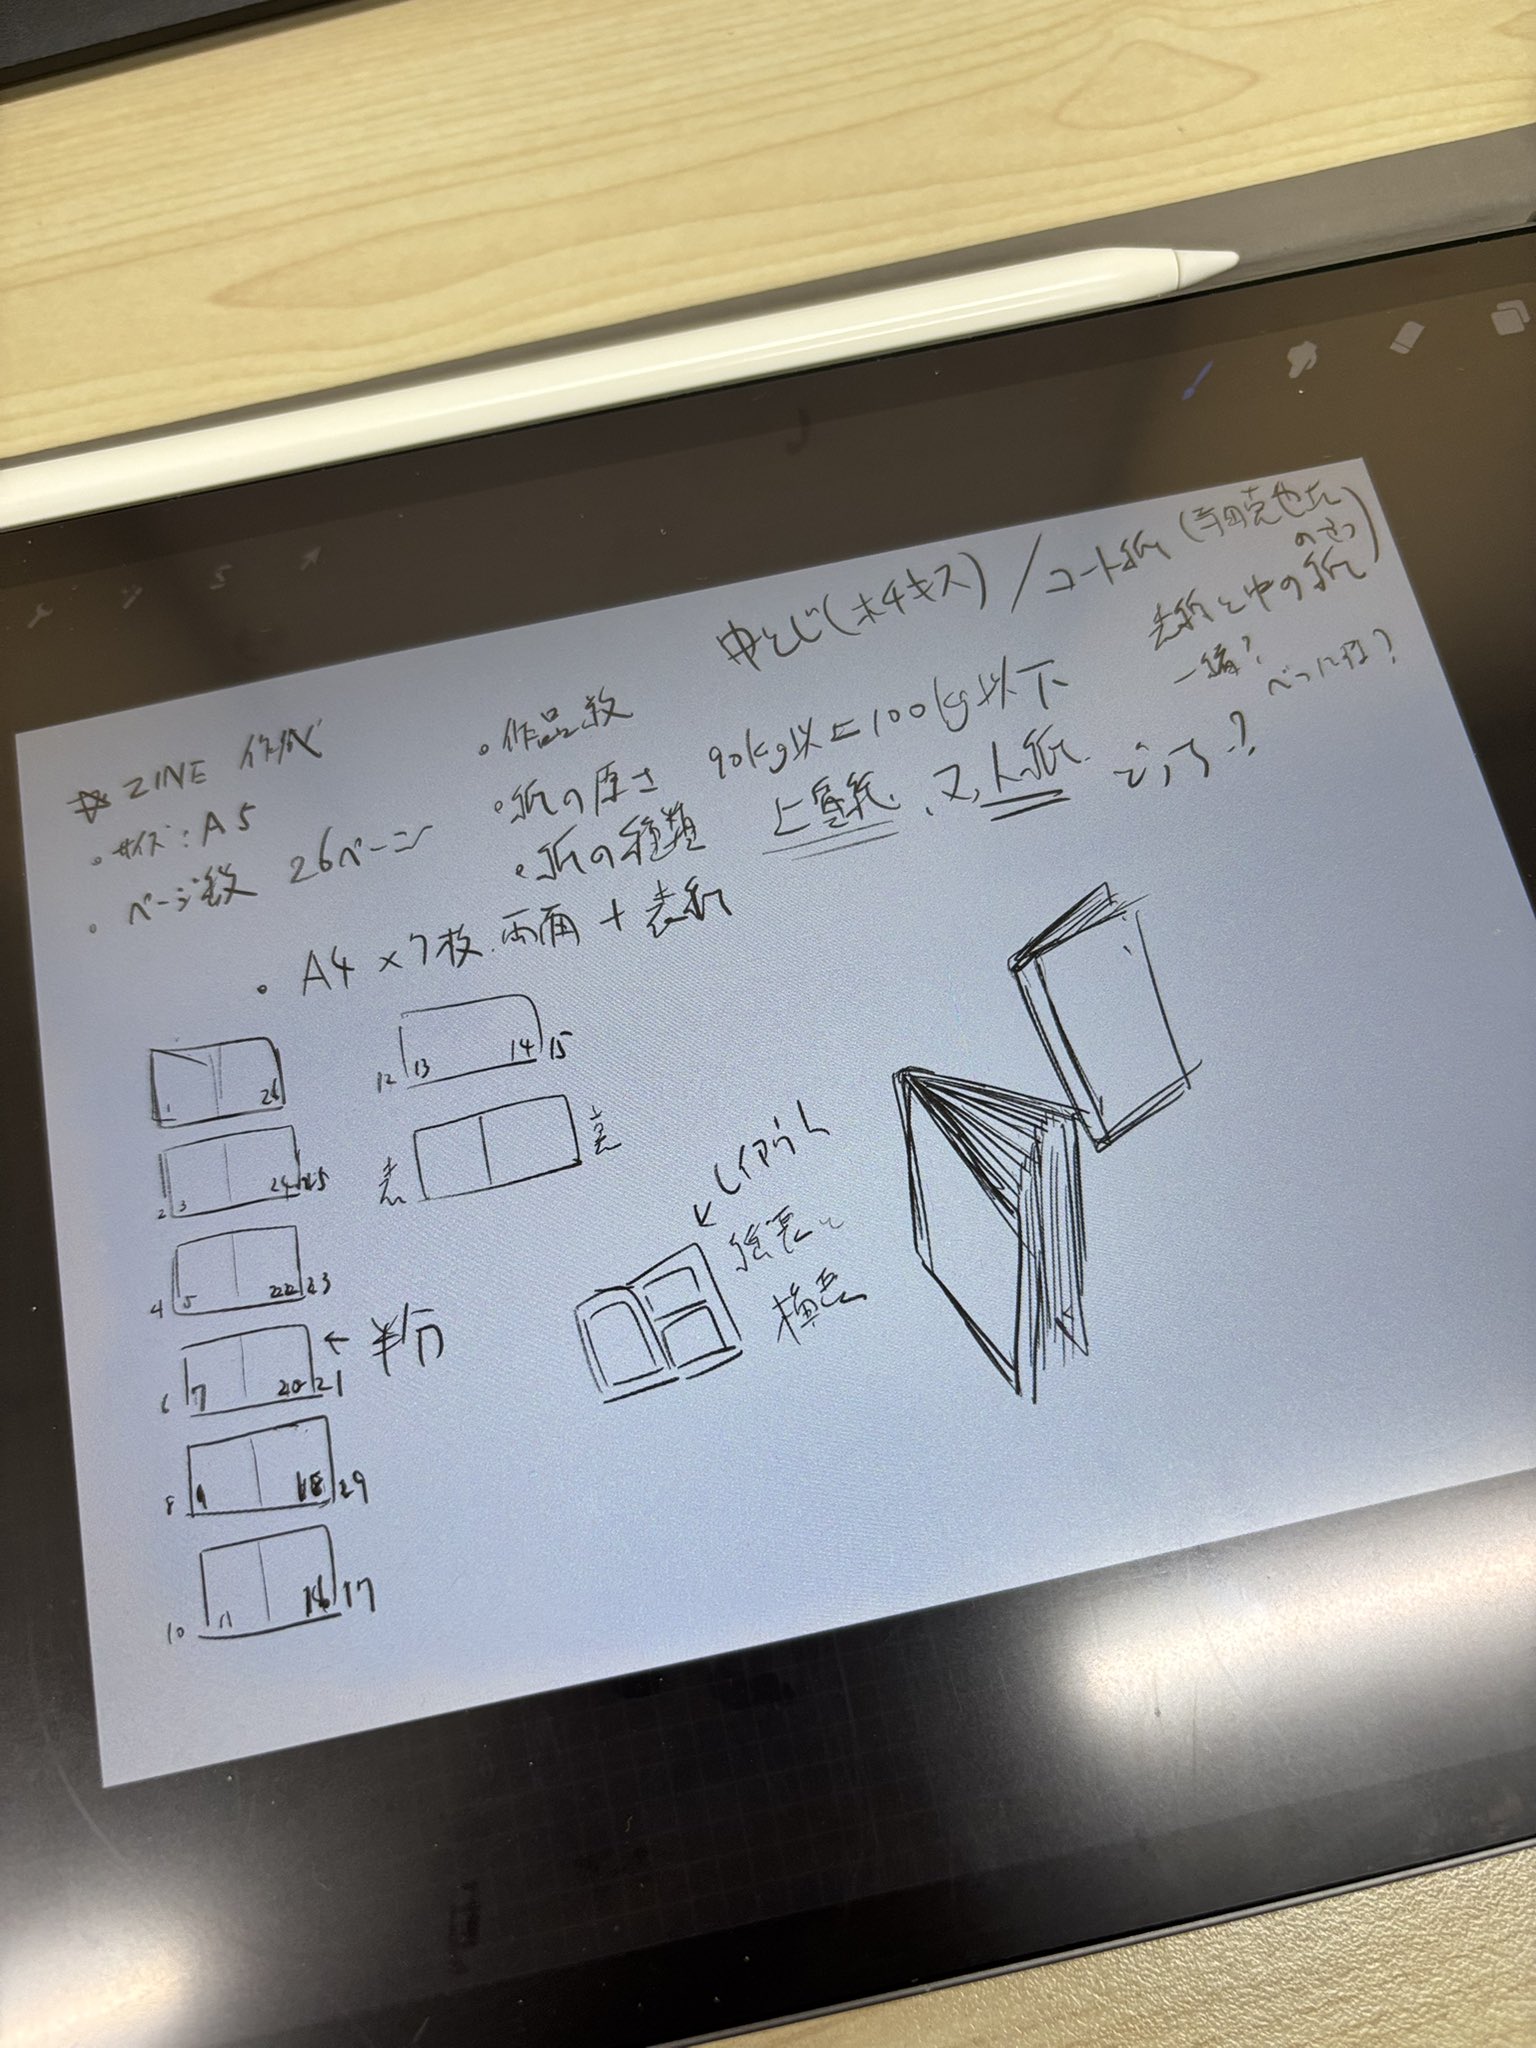 中とじ(ホチキス)/コート紙(寺田克也さんのさつ)
表紙と中の紙
一緒?
べつに内?
☆ZINE 作成
・サイズ:A5
・ページ数 26ページ
・作品数
・紙の厚さ 90kg以上100kg以下
・紙の種類 上質紙、マット紙 どっち?
・A4×7枚.両面+表紙
1 26
2 3 24 25
4 5 22 23
6 7 20 21
←半分
8 9 18 29
10 11 16 17
12 13 14 15
表 裏
レイアウト
縦長と
横長